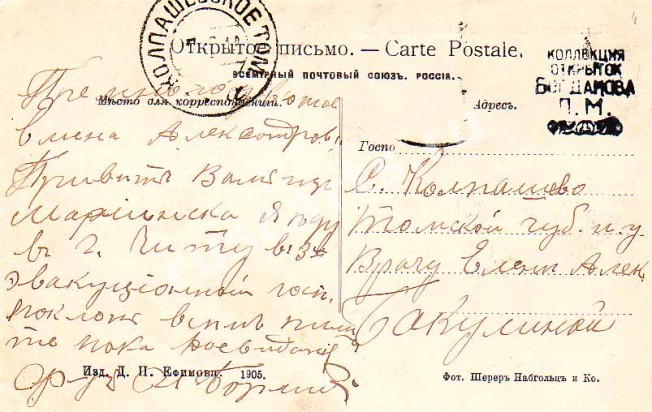 КОЛПАШЕВСКОЕ ТОМ
Открытое письмо. — Carte Postale.
ВСЕМІРНЫЙ ПОЧТОВЫЙ СОЮЗЪ. РОССІЯ.
КОЛЛЕКЦИЯ
ОТКРЫТОК
БОГДАНОВА
П. М.
Мѣсто для корреспонденцій.
Елена Александров
Приветъ Вамъ изъ
Мариинска я еду
въ г. Читу въ 3й
эвакуціонный госп.
поклонъ всемъ
те пока досвиданя
Адресъ.
Госпо
С. Колпашево
Томской губ. н. у
Врачу Елене Алек.
Бакулиной
Изд. Д. П. Ефимова. 1905.
Фот. Шереръ Набгольцъ и Ко.